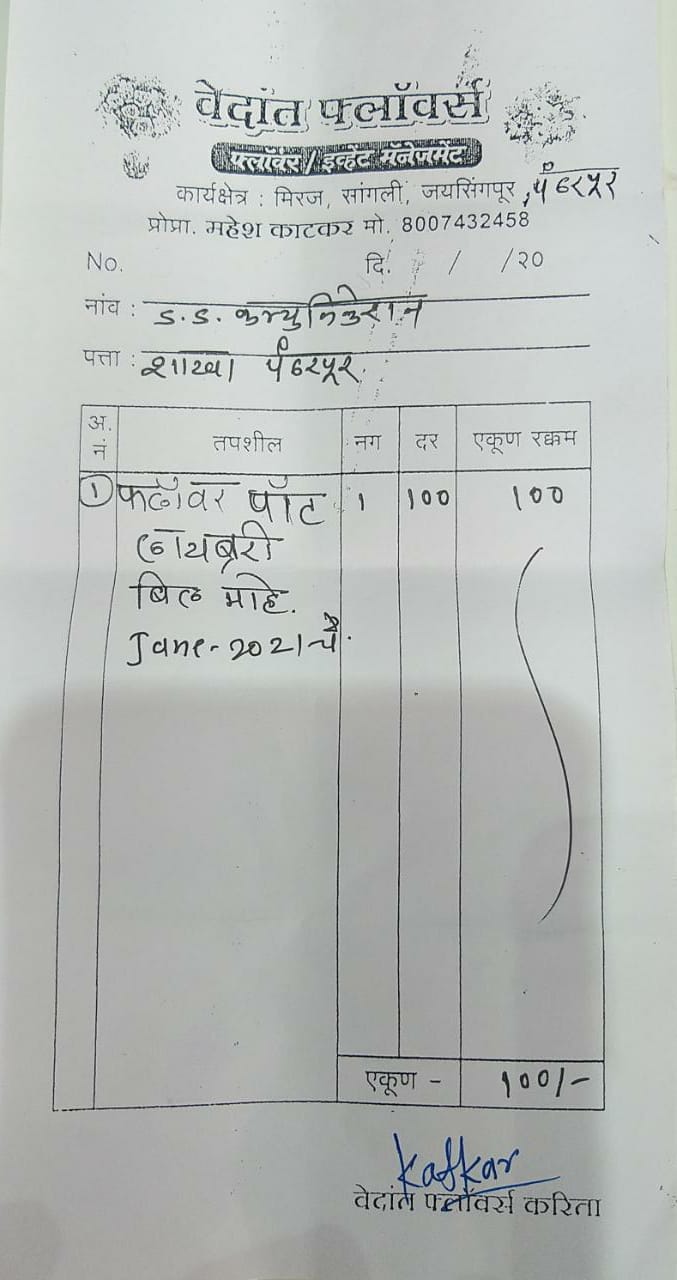 वेदांत फ्लॉवर्स
फ्लॉवर / इव्हेंट मॅनेजमेंट
कार्यक्षेत्र : मिरज, सांगली, जयसिंगपूर, पंढरपूर
प्रोप्रा. महेश काटकर मो. 8007432458
No. दि. / /२०
नांव : ड.ड. कम्युनिकेशन
पत्ता : शाखा पंढरपूर
अ. नं तपशील नग दर एकूण रक्कम
१ फ्लॉवर पॉट 1 100 100
लायब्ररी
बिल माहे.
Jane-2021चे.
एकूण - 100/-
Katkar
वेदांत फ्लॉवर्स करिता